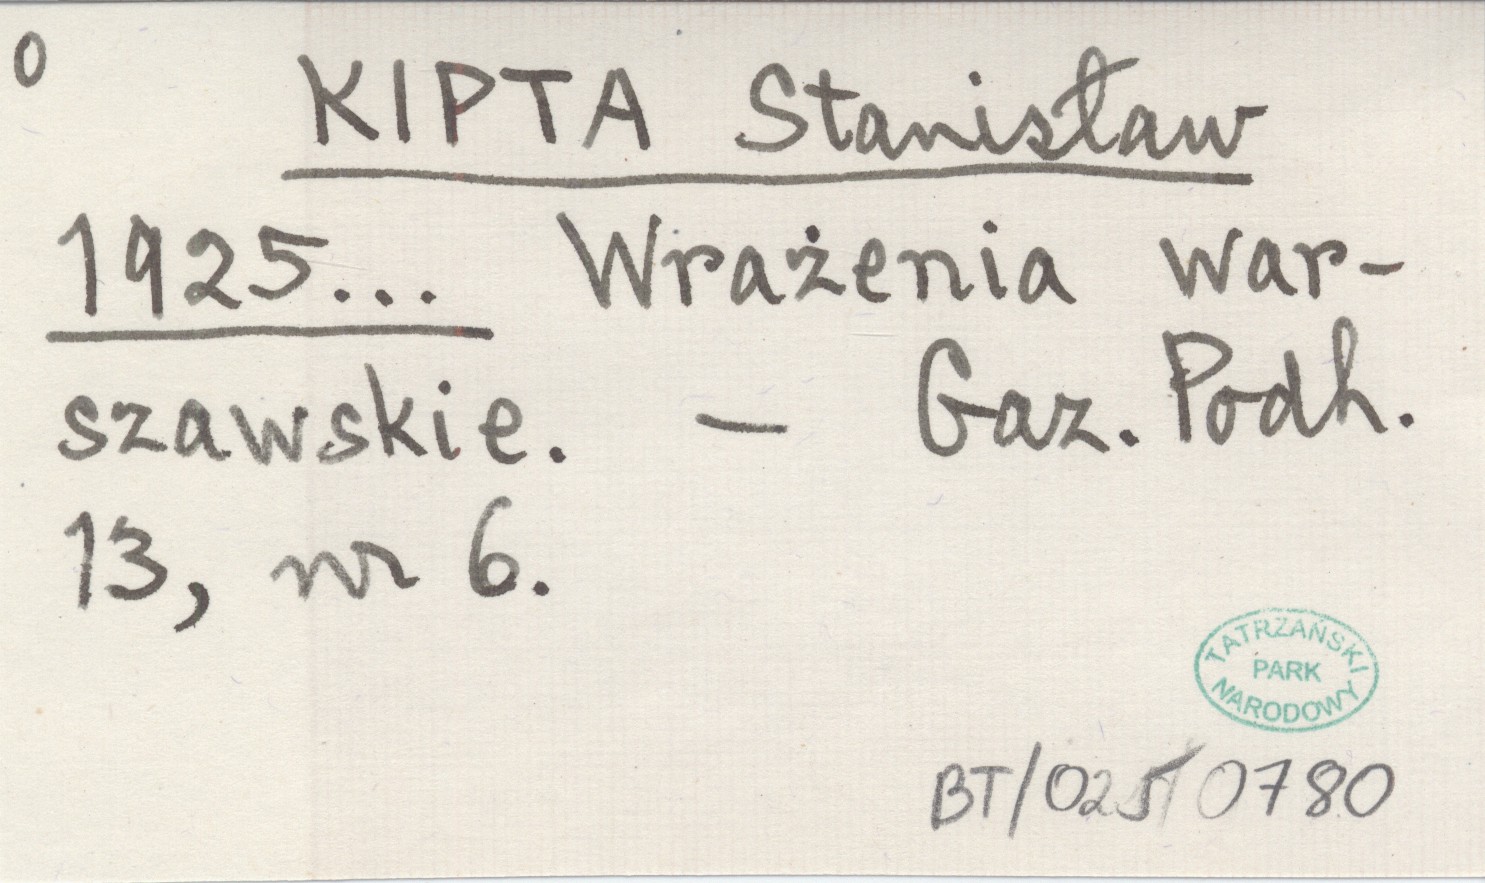 0
KIPTA Stanisław
1925... Wrażenia war-
szawskie. – Gaz. Podh.
13, nr 6.
TATRZAŃSKI
PARK
NARODOWY
BT/025/0780